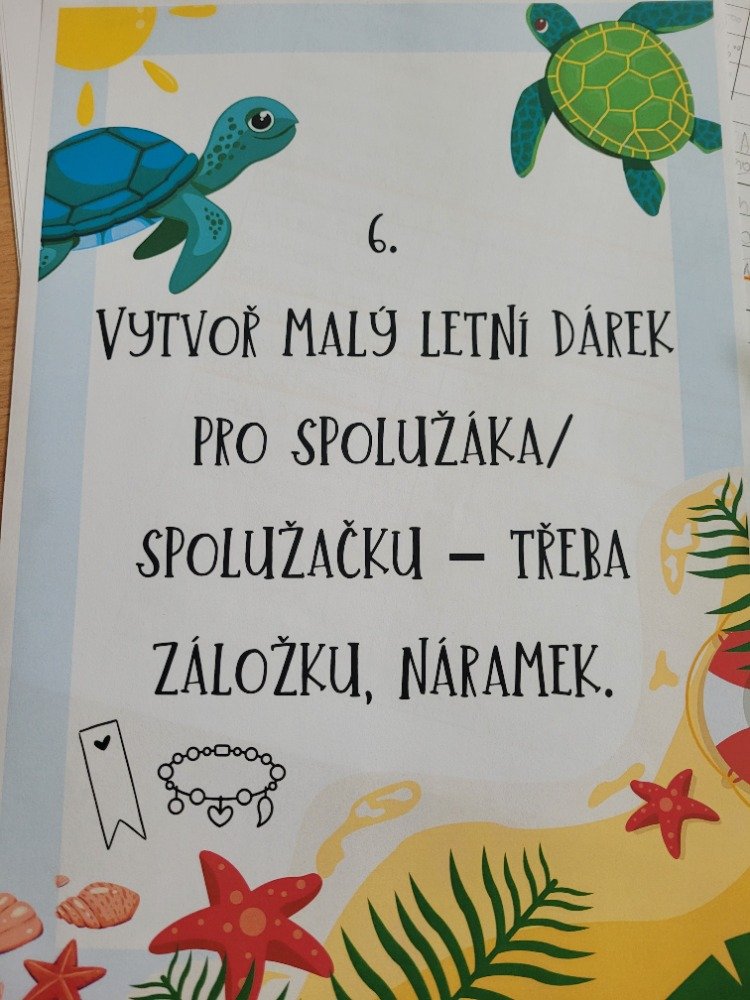 6.
VYTVOŘ MALÝ LETNÍ DÁREK
PRO SPOLUŽÁKA/
SPOLUŽAČKU – TŘEBA
ZÁLOŽKU, NÁRAMEK.